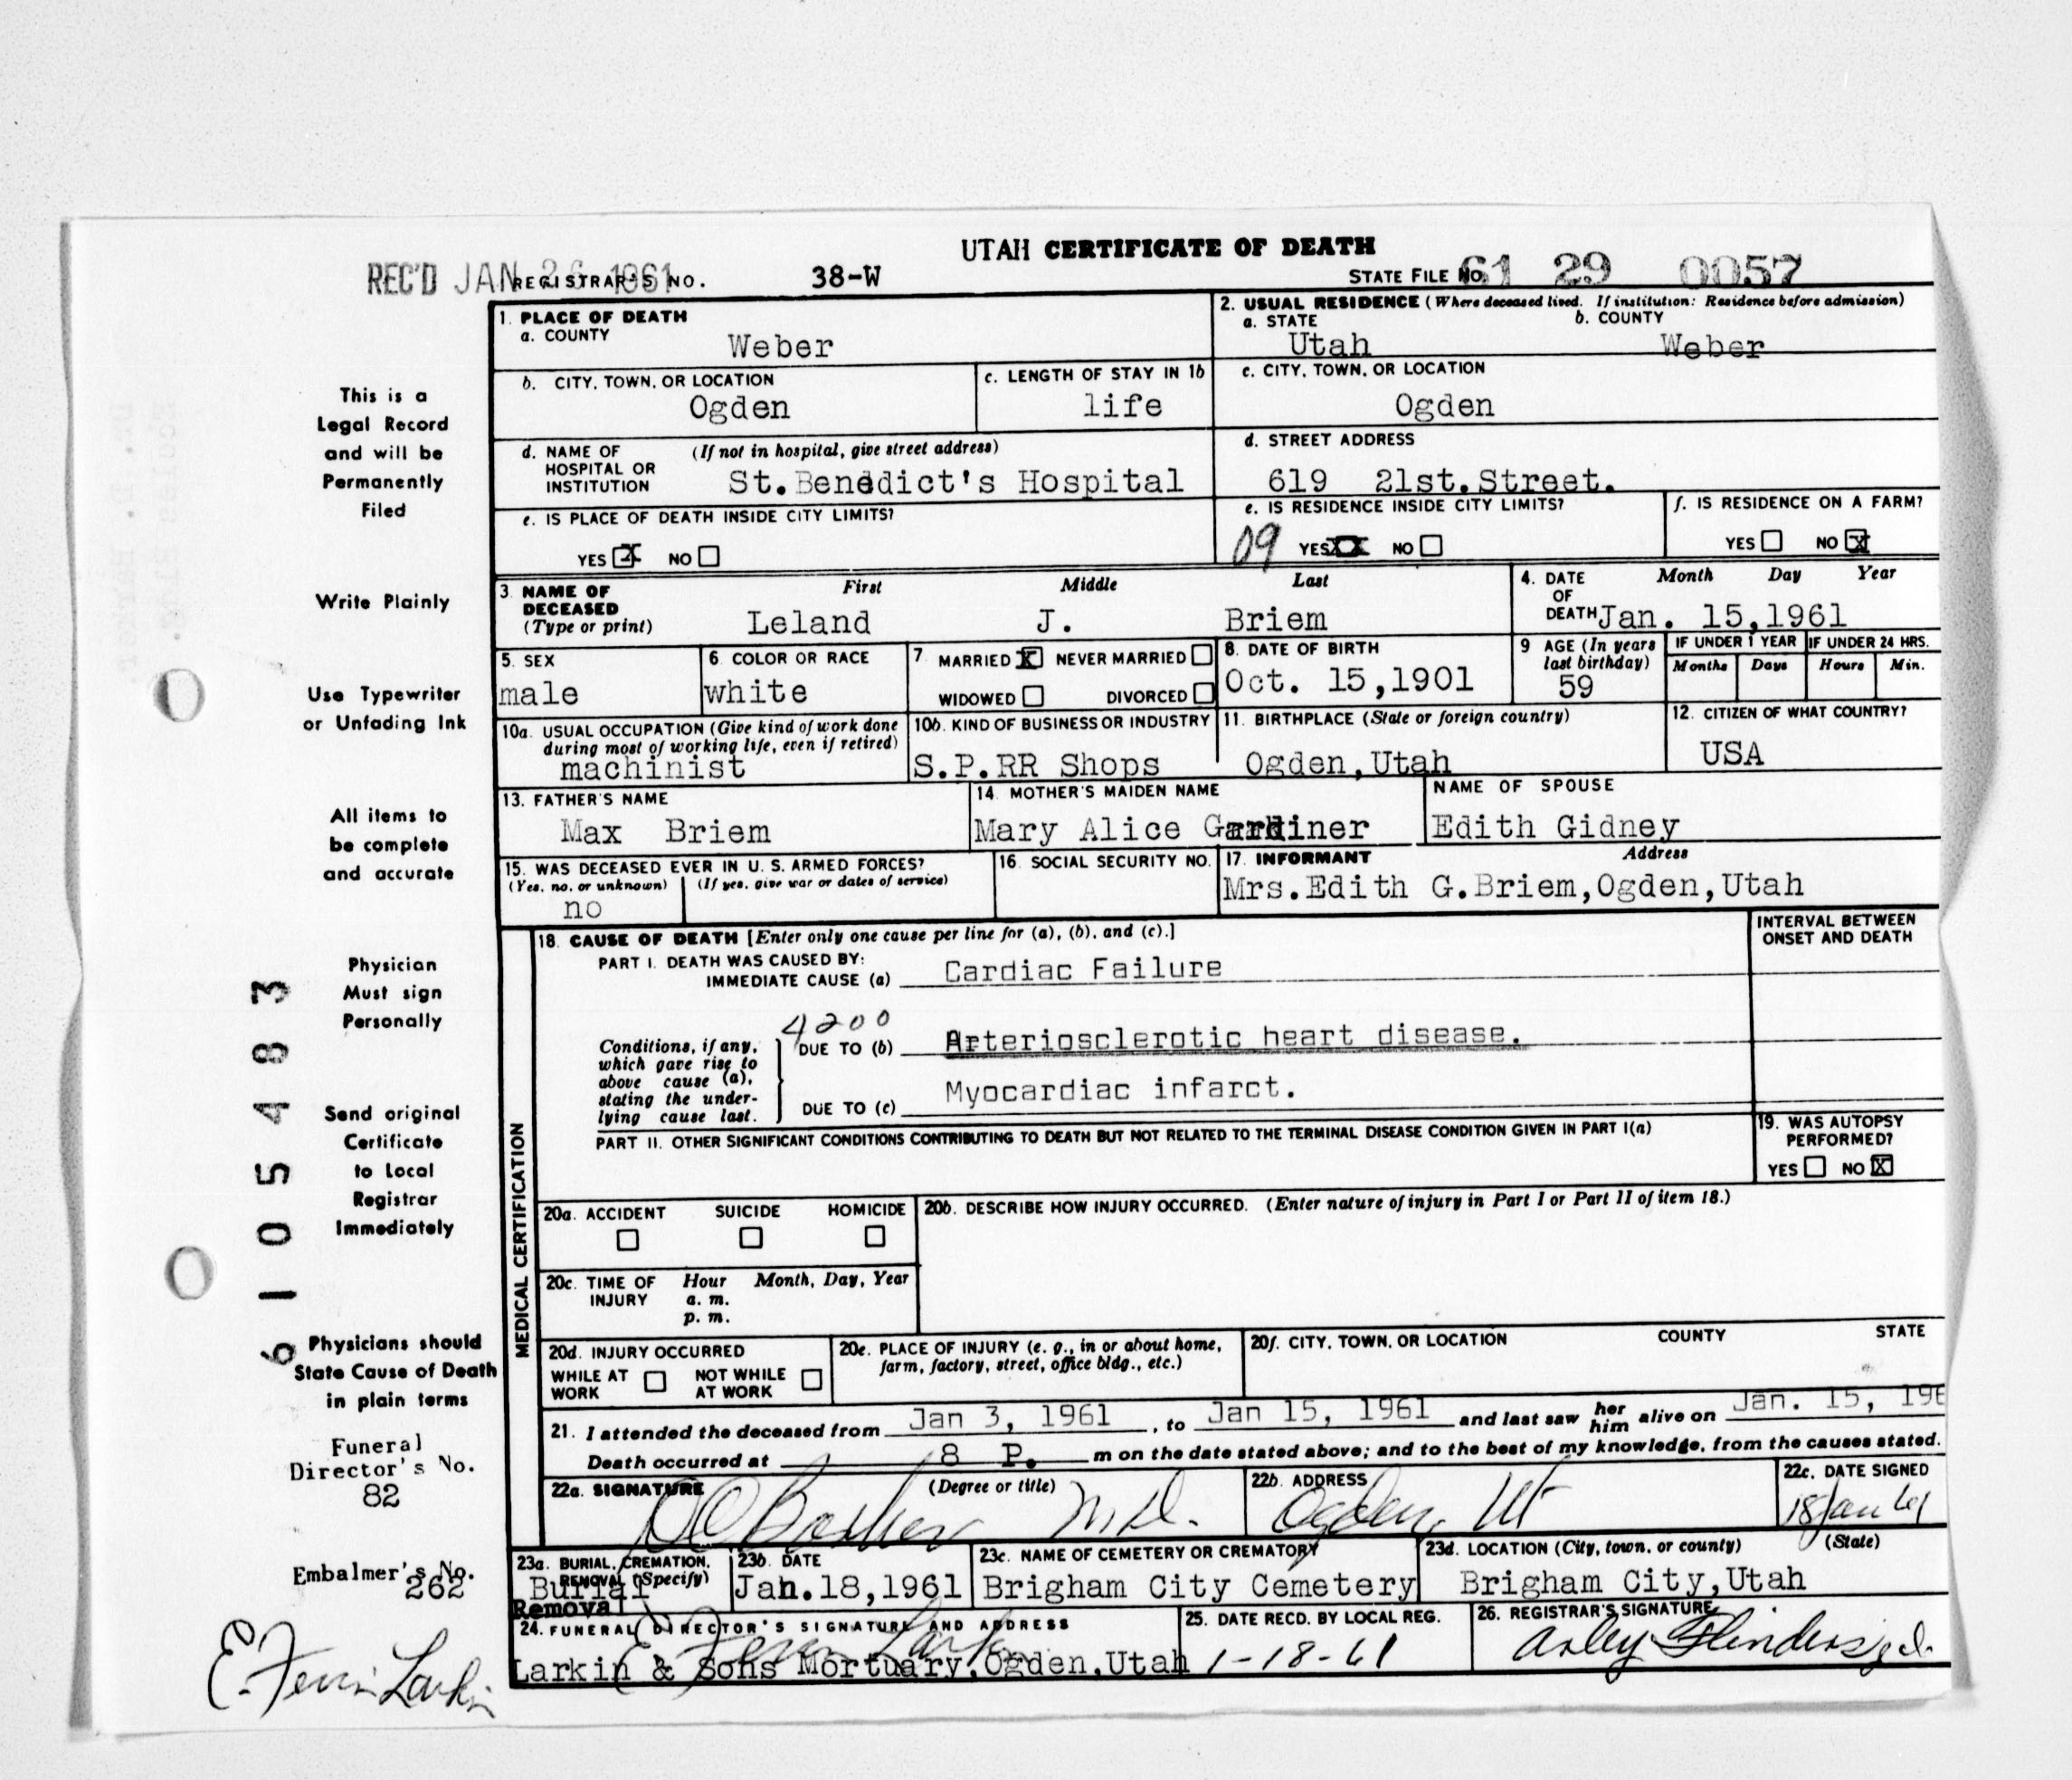 UTAH CERTIFICATE OF DEATH
REC'D JAN 26 1961 REGISTRAR'S NO. 38-W STATE FILE NO. 61 29 0057
1. PLACE OF DEATH
a. COUNTY
Weber
2. USUAL RESIDENCE (Where deceased lived. If institution: Residence before admission)
a. STATE b. COUNTY
Utah Weber
b. CITY, TOWN, OR LOCATION
Ogden
c. LENGTH OF STAY IN 1b
life
c. CITY, TOWN, OR LOCATION
Ogden
d. NAME OF HOSPITAL OR INSTITUTION (If not in hospital, give street address)
St.Benedict's Hospital
d. STREET ADDRESS
619 21st.Street.
e. IS PLACE OF DEATH INSIDE CITY LIMITS?
YES X NO
e. IS RESIDENCE INSIDE CITY LIMITS?
09 YES XX NO
f. IS RESIDENCE ON A FARM?
YES NO X
3. NAME OF DECEASED (Type or print)
First Middle Last
Leland J. Briem
4. DATE OF DEATH Month Day Year
Jan. 15,1961
5. SEX
male
6. COLOR OR RACE
white
7. MARRIED X NEVER MARRIED
WIDOWED DIVORCED
8. DATE OF BIRTH
Oct. 15,1901
9 AGE (In years last birthday)
59
IF UNDER 1 YEAR IF UNDER 24 HRS.
Months Days Hours Min.
10a. USUAL OCCUPATION (Give kind of work done during most of working life, even if retired)
machinist
10b. KIND OF BUSINESS OR INDUSTRY
S.P.RR Shops
11. BIRTHPLACE (State or foreign country)
Ogden,Utah
12. CITIZEN OF WHAT COUNTRY?
USA
13. FATHER'S NAME
Max Briem
14. MOTHER'S MAIDEN NAME
Mary Alice Gardiner
NAME OF SPOUSE
Edith Gidney
15. WAS DECEASED EVER IN U. S. ARMED FORCES?
(Yes, no, or unknown) (If yes, give war or dates of service)
no
16. SOCIAL SECURITY NO.
17. INFORMANT Address
Mrs.Edith G.Briem,Ogden,Utah
MEDICAL CERTIFICATION
18. CAUSE OF DEATH [Enter only one cause per line for (a), (b), and (c).]
INTERVAL BETWEEN ONSET AND DEATH
PART I. DEATH WAS CAUSED BY:
IMMEDIATE CAUSE (a) Cardiac Failure
4200
Conditions, if any, which gave rise to above cause (a), stating the underlying cause last.
DUE TO (b) Arteriosclerotic heart disease.
DUE TO (c) Myocardiac infarct.
PART II. OTHER SIGNIFICANT CONDITIONS CONTRIBUTING TO DEATH BUT NOT RELATED TO THE TERMINAL DISEASE CONDITION GIVEN IN PART I(a)
19. WAS AUTOPSY PERFORMED?
YES NO X
20a. ACCIDENT SUICIDE HOMICIDE
20b. DESCRIBE HOW INJURY OCCURRED. (Enter nature of injury in Part I or Part II of item 18.)
20c. TIME OF INJURY Hour Month, Day, Year
a. m.
p. m.
20d. INJURY OCCURRED
WHILE AT WORK NOT WHILE AT WORK
20e. PLACE OF INJURY (e. g., in or about home, farm, factory, street, office bldg., etc.)
20f. CITY, TOWN, OR LOCATION COUNTY STATE
21. I attended the deceased from Jan 3, 1961, to Jan 15, 1961 and last saw her him alive on Jan. 15, 196
Death occurred at 8 P. m on the date stated above; and to the best of my knowledge, from the causes stated.
22a. SIGNATURE (Degree or title)
M.D.
22b. ADDRESS
Ogden, Ut
22c. DATE SIGNED
18 Jan 61
23a. BURIAL, CREMATION, REMOVAL (Specify)
Burial
Removal
23b. DATE
Jan.18,1961
23c. NAME OF CEMETERY OR CREMATORY
Brigham City Cemetery
23d. LOCATION (City, town, or county) (State)
Brigham City,Utah
24. FUNERAL DIRECTOR'S SIGNATURE AND ADDRESS
E. Ferrin Larkin
Larkin & Sons Mortuary,Ogden,Utah
25. DATE RECD. BY LOCAL REG.
1-18-61
26. REGISTRAR'S SIGNATURE
Arley Flinders
This is a
Legal Record
and will be
Permanently
Filed
Write Plainly
Use Typewriter
or Unfading Ink
All items to
be complete
and accurate
Physician
Must sign
Personally
Send original
Certificate
to Local
Registrar
Immediately
Physicians should
State Cause of Death
in plain terms
6105483
Funeral
Director's No.
82
Embalmer's No.
262
E. Ferrin Larkin